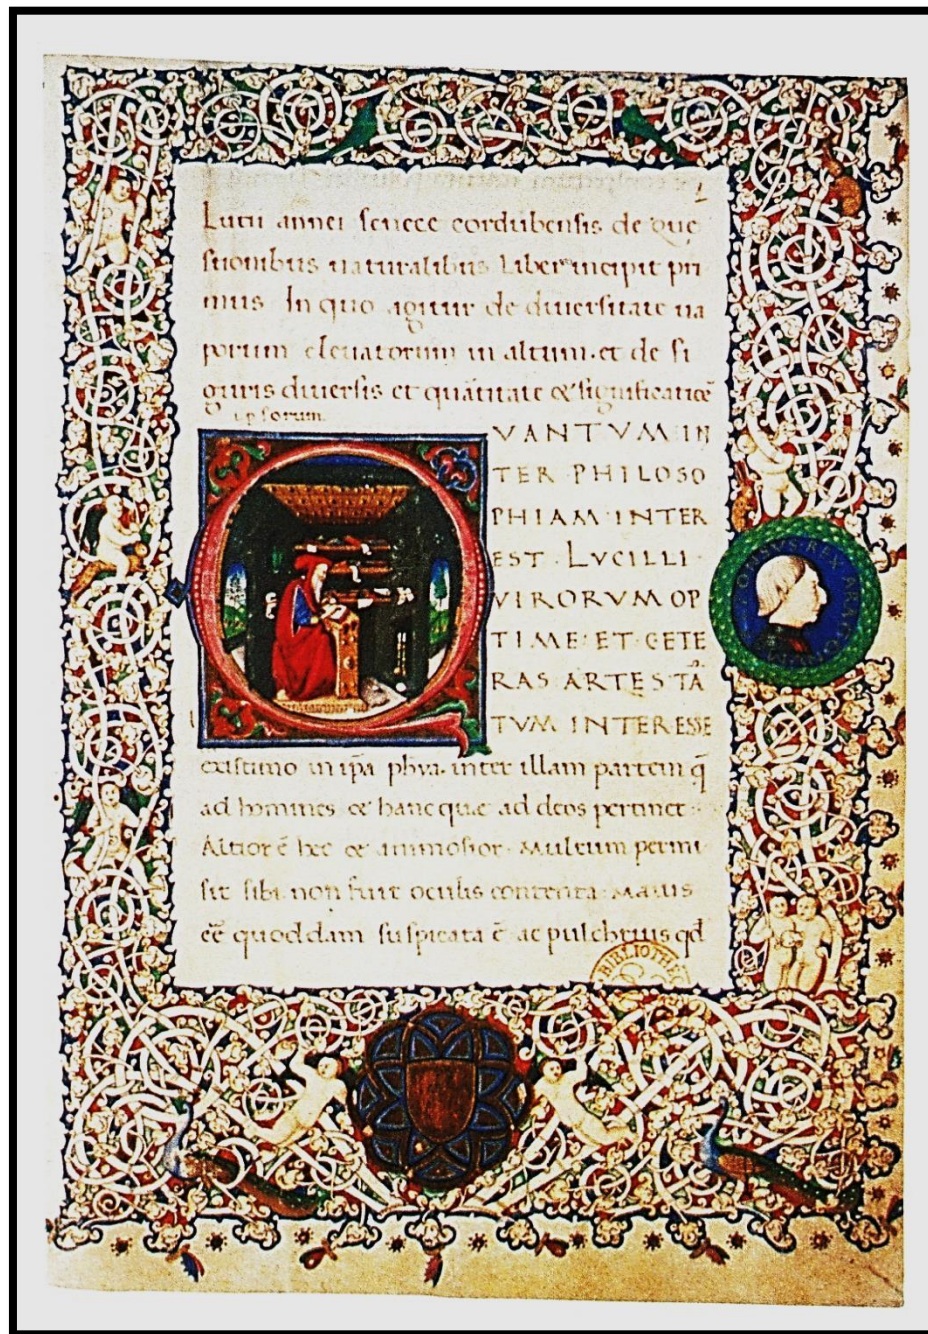 Lutii annei senece cordubensis de que
stionibus naturalibus Liber incipit pri
mus In quo agitur de diuersitate ua
porum eleuatorum in altum. et de fi
guris diuersis et quãtitate & significatiõe
ipsorum
VANTVM IN
TER PHILOSO
PHIAM INTER
EST LVCILLI
VIRORVM OP
TIME ET CETE
RAS ARTES TÃ
TVM INTERESSE
existimo in ip̃a phỹa. inter illam partem q̃
ad homines & hanc que ad deos pertinet.
Altior ẽ hec & animosior. Multum permi
sit sibi. non fuit oculis contenta. Maius
eẽ quoddam suspicata ẽ ac pulchrius qđ
REX ARAGO
BIBLIOTHE